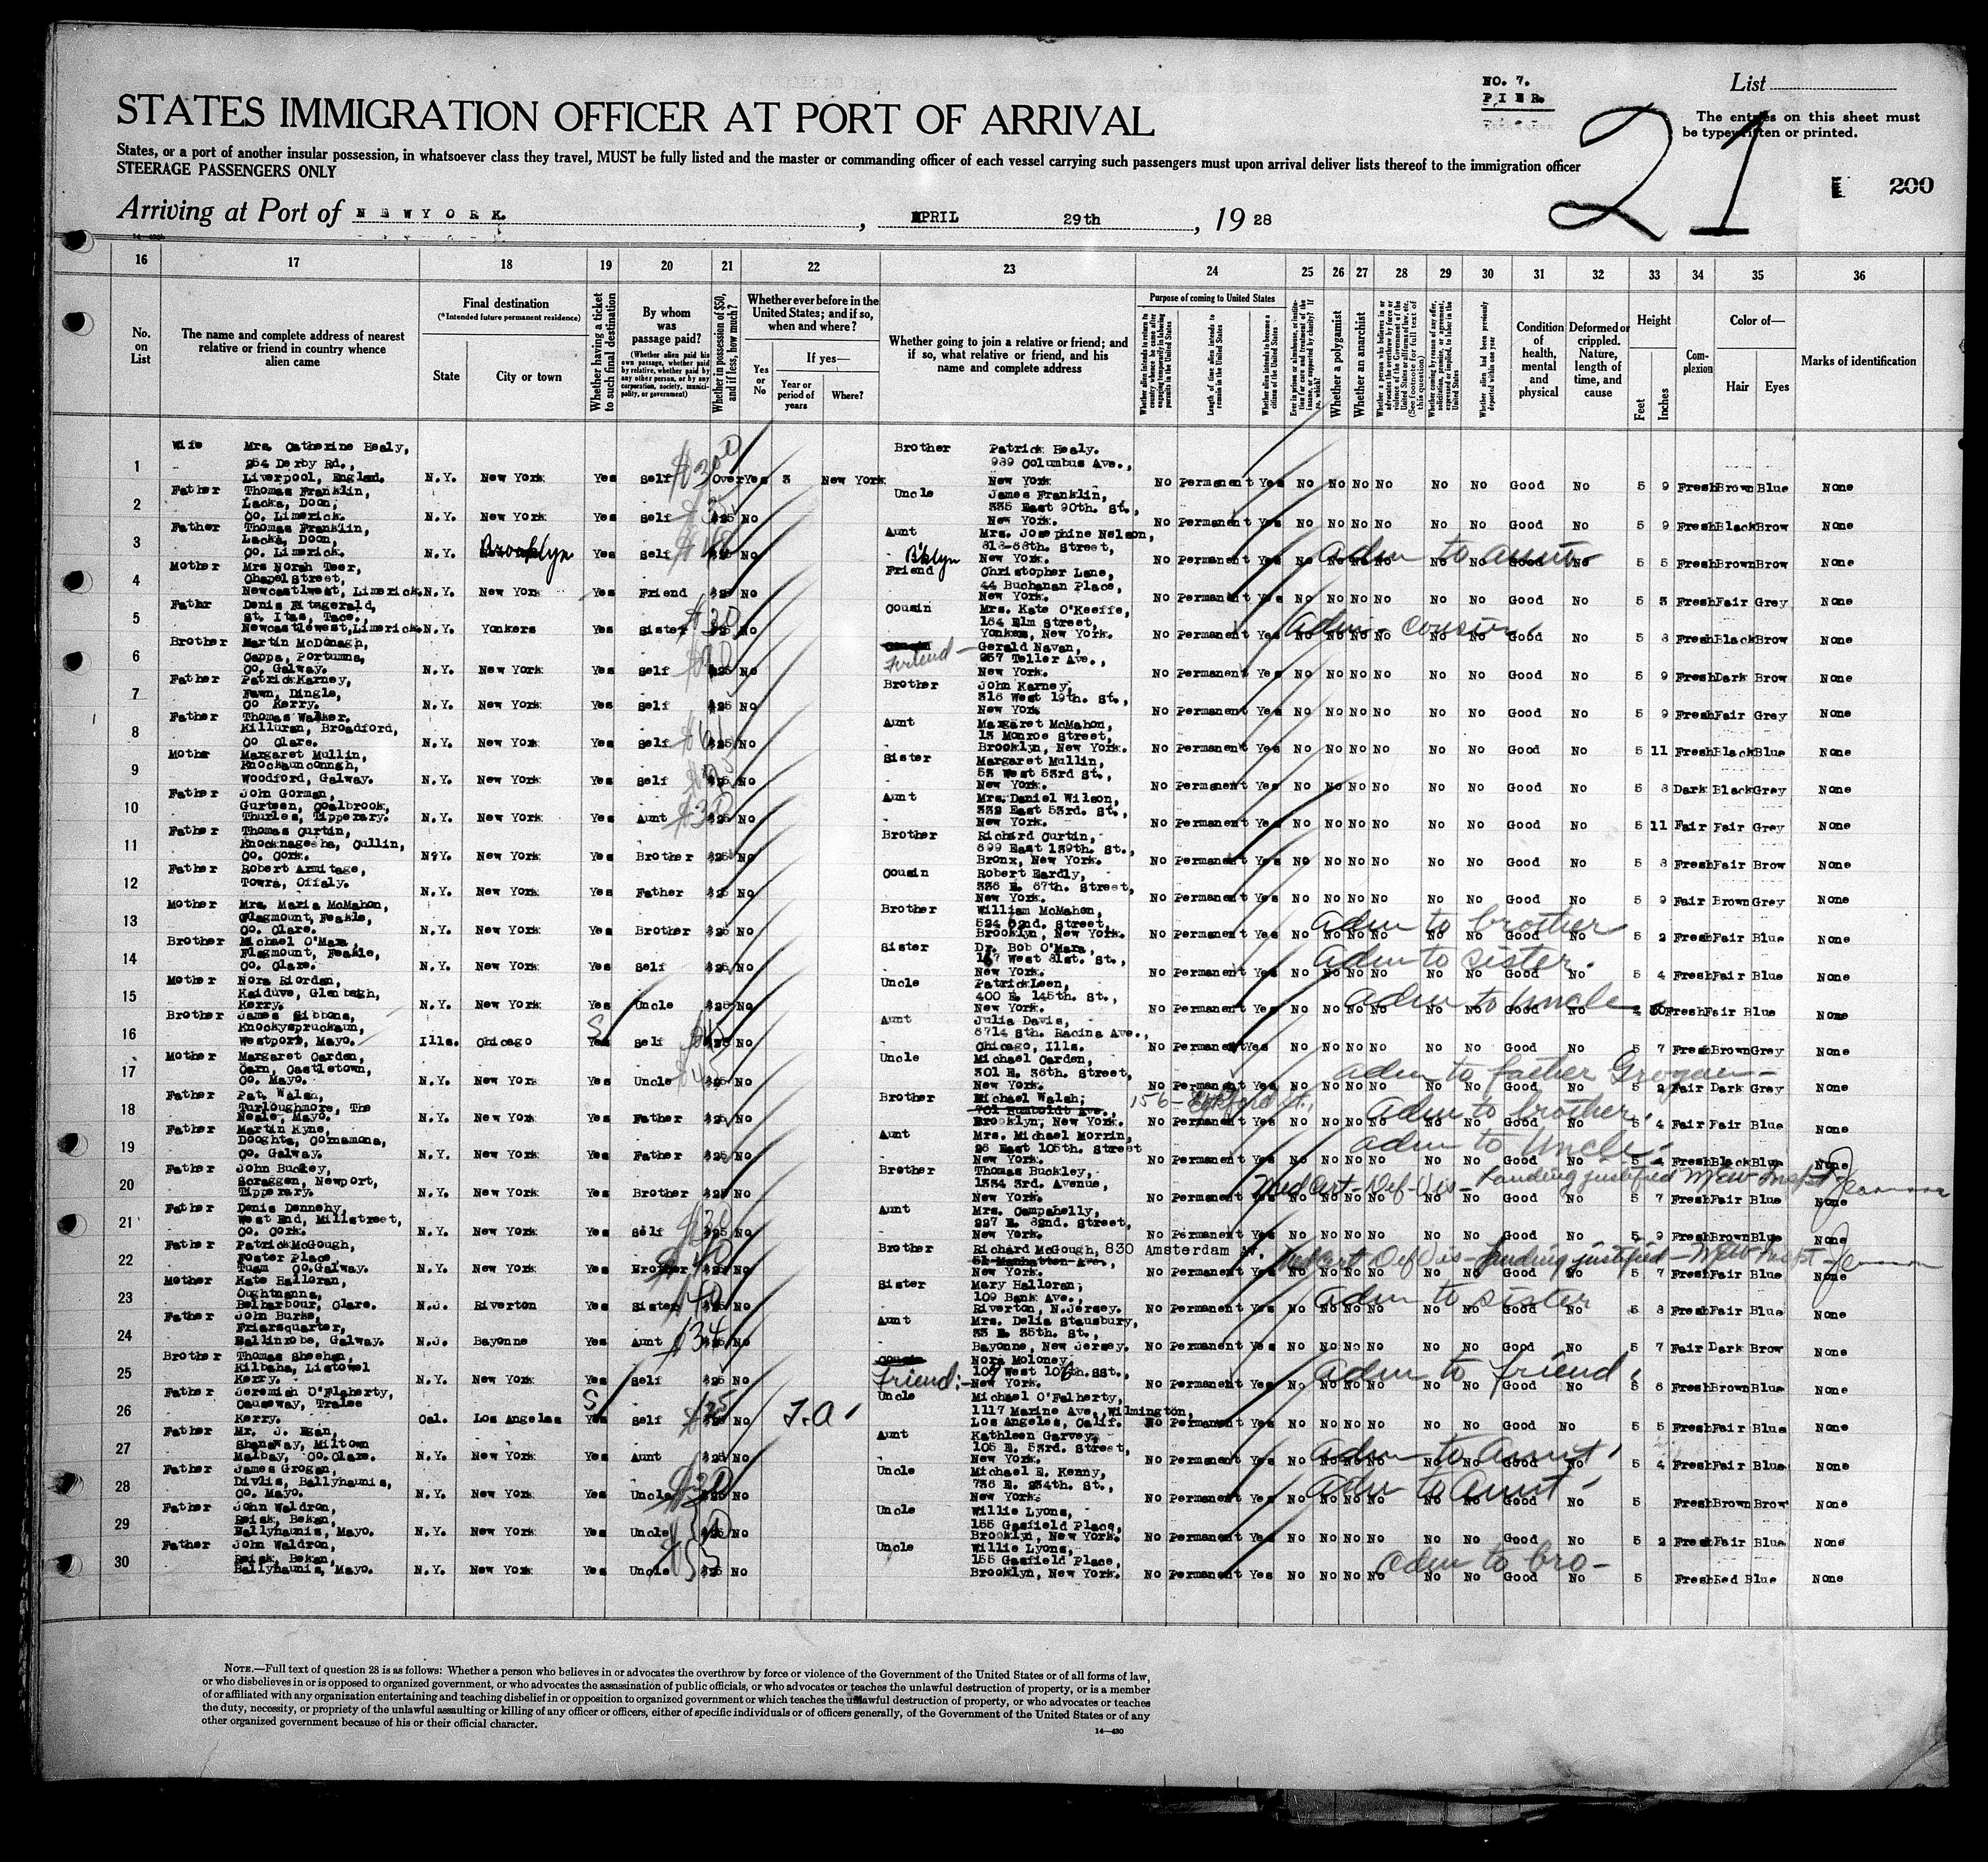 NO. 7.
PIER.
List
STATES IMMIGRATION OFFICER AT PORT OF ARRIVAL
21
The entries on this sheet must
be typewritten or printed.
States, or a port of another insular possession, in whatsoever class they travel, MUST be fully listed and the master or commanding officer of each vessel carrying such passengers must upon arrival deliver lists thereof to the immigration officer
STEERAGE PASSENGERS ONLY
200
Arriving at Port of NEW YORK. , APRIL 29th , 19 28
16 17 18 19 20 21 22 23 24 25 26 27 28 29 30 31 32 33 34 35 36
No. on List
The name and complete address of nearest relative or friend in country whence alien came
Final destination
(*Intended future permanent residence)
State
City or town
Whether having a ticket to such final destination
By whom was passage paid?
(Whether alien paid his own passage, whether paid by relative, whether paid by any other person, or by any corporation, society, municipality, or government)
Whether in possession of $50, and if less, how much?
Whether ever before in the United States; and if so, when and where?
Yes or No
If yes—
Year or period of years
Where?
Whether going to join a relative or friend; and if so, what relative or friend, and his name and complete address
Purpose of coming to United States
Length of time alien intends to remain in the United States
Whether alien intends to become a citizen of the United States
Whether a polygamist
Whether an anarchist
Condition of health, mental and physical
Deformed or crippled. Nature, length of time, and cause
Height
Feet
Inches
Complexion
Color of—
Hair
Eyes
Marks of identification
Wife Mrs. Catherine Healy, Brother Patrick Healy.
1 254 Derby Rd., 989 Columbus Ave.,
Liverpool, England. N.Y. New York Yes Self $300 Over Yes 3 New York New York No Permanent Yes No No No No No No Good No 5 9 Fresh Brown Blue None
Father Thomas Franklin, Uncle James Franklin,
2 Lacka, Doon, 335 East 90th. St.,
Co. Limerick. N.Y. New York Yes Self $25 No New York. No Permanent Yes No No No No No No Good No 5 9 Fresh Black Brow None
Father Thomas Franklin, Aunt Mrs. Josephine Nelson,
3 Lacka, Doon, 818-68th. Street,
Co. Limerick. N.Y. Brooklyn Yes Self $25 No B'klyn New York. No Permanent Yes No No No No No No Good No 5 5 Fresh Brown Brow None
adm to aunt
Mother Mrs Norah Teer, Friend Christopher Lane,
4 Chapel Street, 44 Buchanan Place,
Newcastlwest, Limerick. N.Y. New York Yes Friend $25 No New York. No Permanent Yes No No No No No No Good No 5 3 Fresh Fair Grey None
Fathr Denis Fitzgerald, Cousin Mrs. Kate O'Keeffe,
5 St. Itas, Tace., 164 Elm Street,
Newcastlewest, Limerick. N.Y. Yonkers Yes Sister $30 $25 No Yonkers, New York. No Permanent Yes No No No No No No Good No 5 8 Fresh Black Brow None
adm - cousin
Brother Martin McDonagh, Cousin Friend— Gerald Navan,
6 Cappa, Portumna, 957 Teller Ave.,
Co. Galway. N.Y. New York Yes Self $25 No New York. No Permanent Yes No No No No No No Good No 5 9 Fresh Dark Brow None
Father Patrick Karney, Brother John Karney,
7 Fawn, Dingle, 318 West 19th. St.,
Co Kerry. N.Y. New York Yes Self $25 No New York No Permanent Yes No No No No No No Good No 5 9 Fresh Fair Grey None
Father Thomas Walker. Aunt Margaret McMahon,
8 Killuran, Broadford, 13 Monroe Street,
Co Clare. N.Y. New York Yes Self $25 No Brooklyn, New York. No Permanent Yes No No No No No No Good No 5 11 Fresh Black Blue None
Mothr Margaret Mullin, Sister Margaret Mullin,
9 Knockaunconngh, 53 West 53rd St.,
Woodford, Galway. N.Y. New York Yes Self $25 No New York. No Permanent Yes No No No No No No Good No 5 8 Dark Black Grey None
Father John Gorman, Aunt Mrs. Daniel Wilson,
10 Gurteen, Coalbrook, 339 East 53rd. St.,
Thurles, Tipperary. N.Y. New York Yes Aunt $30 $25 No New York. No Permanent Yes No No No No No No Good No 5 11 Fair Fair Grey None
Father Thomas Curtin, Brother Richard Curtin,
11 Knocknageeha, Cullin, 699 East 139th. St.,
Co. Cork. N.Y. New York Yes Brother $25 No Bronx, New York. No Permanent Yes No No No No No No Good No 5 8 Fresh Fair Brow None
Father Robert Armitage, Cousin Robert Eardly,
12 Towra, Offaly. 336 E. 67th. Street,
N.Y. New York Yes Father $25 No New York. No Permanent Yes No No No No No No Good No 5 9 Fair Brown Grey None
Mother Mrs. Maria McMahon, Brother William McMahon,
13 Flagmount, Feakle, 524 62nd. Street,
Co. Clare. N.Y. New York Yes Brother $25 No Brooklyn, New York. No Permanent Yes No No No No No No Good No 5 2 Fresh Fair Blue None
adm to brother
Brother Michael O'Mara, Sister Dr. Bob O'Mara,
14 Flagmount, Feakle, 167 West 81st. St.,
Co. Clare. N.Y. New York Yes Self $25 No New York. No Permanent Yes No No No No No No Good No 5 4 Fresh Fair Blue None
adm to sister.
Mother Nora Riordan, Uncle Patrick Leen,
15 Kaiduve, Glenbeigh, 400 E. 145th. St.,
Kerry. N.Y. New York Yes Uncle $25 No New York. No Permanent Yes No No No No No No Good No Fresh Fair Blue None
adm to Uncle
Brother James Gibbons, Aunt Julia Davis,
16 Knockyspruckaun, 6714 Sth. Racina Ave.,
Westport, Mayo. Ills. Chicago S Yes Self $45 No Chicago, Ills. No Permanent Yes No No No No No No Good No 5 7 Fresh Brown Grey None
Mother Margaret Carden, Uncle Michael Carden,
17 Carn, Castletown, 301 E. 36th. Street,
Co. Mayo. N.Y. New York Yes Uncle $45 $25 No New York. No Permanent Yes No No No No No No Good No 5 2 Fair Dark Grey None
adm to father Grogan—
Father Pat. Walsh, Brother Michael Walsh; 156-
18 Turloughmore, The 701 Humboldt Ave.,
Neale, Mayo. N.Y. New York Yes Father $25 No Brooklyn, New York. No Permanent Yes No No No No No No Good No 5 4 Fair Fair Blue None
adm to brother.
Father Martin Kyne, Aunt Mrs. Michael Morrin,
19 Dooghta, Cornamona, 26 East 105th. Street
Co. Galway. N.Y. New York Yes Father $25 No New York. No Permanent Yes No No No No No No Good No 5 4 Fresh Black Blue None
adm to Uncle.
Father John Buckley, Brother Thomas Buckley,
20 Scraggen, Newport, 1334 3rd. Avenue,
Tipperary. N.Y. New York Yes Brother $25 No New York. No Permanent Yes No No No No No No Good No 5 7 Fresh Fair Blue None
Med Cert - Def - Vis - Landing justified
Father Denis Dennehy, Aunt Mrs. Campahelly,
21 West End, Millstreet, 227 E. 82nd. Street,
Co. Cork. N.Y. New York Yes Self $25 No New York. No Permanent Yes No No No No No No Good No 5 9 Fresh Brown Blue None
Father Patrick McGough, Brother Richard McGough, 830 Amsterdam Av.
22 Foster Place, 52 Manhattan Ave.,
Tuam Co. Galway. N.Y. New York Yes Brother $40 No New York. No Permanent Yes No No No No No No Good No 5 7 Fresh Fair Blue None
Med Cert Def Vis - Landing justified
Mother Kate Halloran, Sister Mary Halloran,
23 Oughtmanna, 109 Bank Ave.,
Belharbour, Clare. N.J. Riverton Yes Sister $40 No Riverton, N.Jersey. No Permanent Yes No No No No No No Good No 5 8 Fresh Fair Blue None
adm to sister
Father John Burke, Aunt Mrs. Delia Stausbury,
24 Friarsquarter, 33 E. 35th. St.,
Ballinrobe, Galway. N.J. Bayonne Yes Aunt $34 $25 No Bayonne, New Jersey. No Permanent Yes No No No No No No Good No 5 7 Fair Dark Brow None
Brother Thomas Sheehan, Cousin Nora Moloney
25 Kilbaha, Listowel Friend:- West 106th. St.,
Kerry. N.Y. New York Yes Self $25 No New York. No Permanent Yes No No No No No No Good No 5 6 Fresh Brown Blue None
adm to friend.
Father Jeremiah O'Flaherty, Uncle Michael O'Falherty,
26 Causeway, Tralee 1117 Marine Ave., Wilmington,
Kerry. Cal. Los Angelas S Yes Self $25 No T.A. Los Angeles, Calif. No Permanent Yes No No No No No No Good No 5 5 Fresh Fair Blue None
Father Mr. J. Egan, Aunt Kathleen Garvey,
27 Shanaway, Miltown 105 E. 53rd. Street,
Malbay, Co. Clare. N.Y. New York Yes Aunt $25 No New York. No Permanent Yes No No No No No No Good No 5 4 Fresh Fair Blue None
adm to Aunt.
Father James Grogan, Uncle Michael E. Kenny,
28 Divlis, Ballyhaunis, 736 E. 234th. St.,
Co. Mayo. N.Y. New York Yes Uncle $30 $25 No New York. No Permanent Yes No No No No No No Good No 5 Fresh Brown Brow None
adm to Aunt -
Father John Waldron, Uncle Willie Lyons,
29 Reisk, Bekan, 155 Gasfield Place,
Ballyhaunis, Mayo. N.Y. New York Yes Uncle $25 No Brooklyn, New York. No Permanent Yes No No No No No No Good No 5 2 Fresh Fair Blue None
Father John Waldron, Uncle Willie Lyons,
30 Reisk, Bekan, 155 Gasfield Place,
Ballyhaunis, Mayo. N.Y. New York Yes Uncle $25 No Brooklyn, New York. No Permanent Yes No No No No No No Good No 5 Fresh Red Blue None
adm to bro-
NOTE.—Full text of question 28 is as follows: Whether a person who believes in or advocates the overthrow by force or violence of the Government of the United States or of all forms of law,
or who disbelieves in or is opposed to organized government, or who advocates the assassination of public officials, or who advocates or teaches the unlawful destruction of property, or is a member
of or affiliated with any organization entertaining and teaching disbelief in or opposition to organized government or which teaches the unlawful destruction of property, or who advocates or teaches
the duty, necessity, or propriety of the unlawful assaulting or killing of any officer or officers, either of specific individuals or of officers generally, of the Government of the United States or of any
other organized government because of his or their official character.
14—430